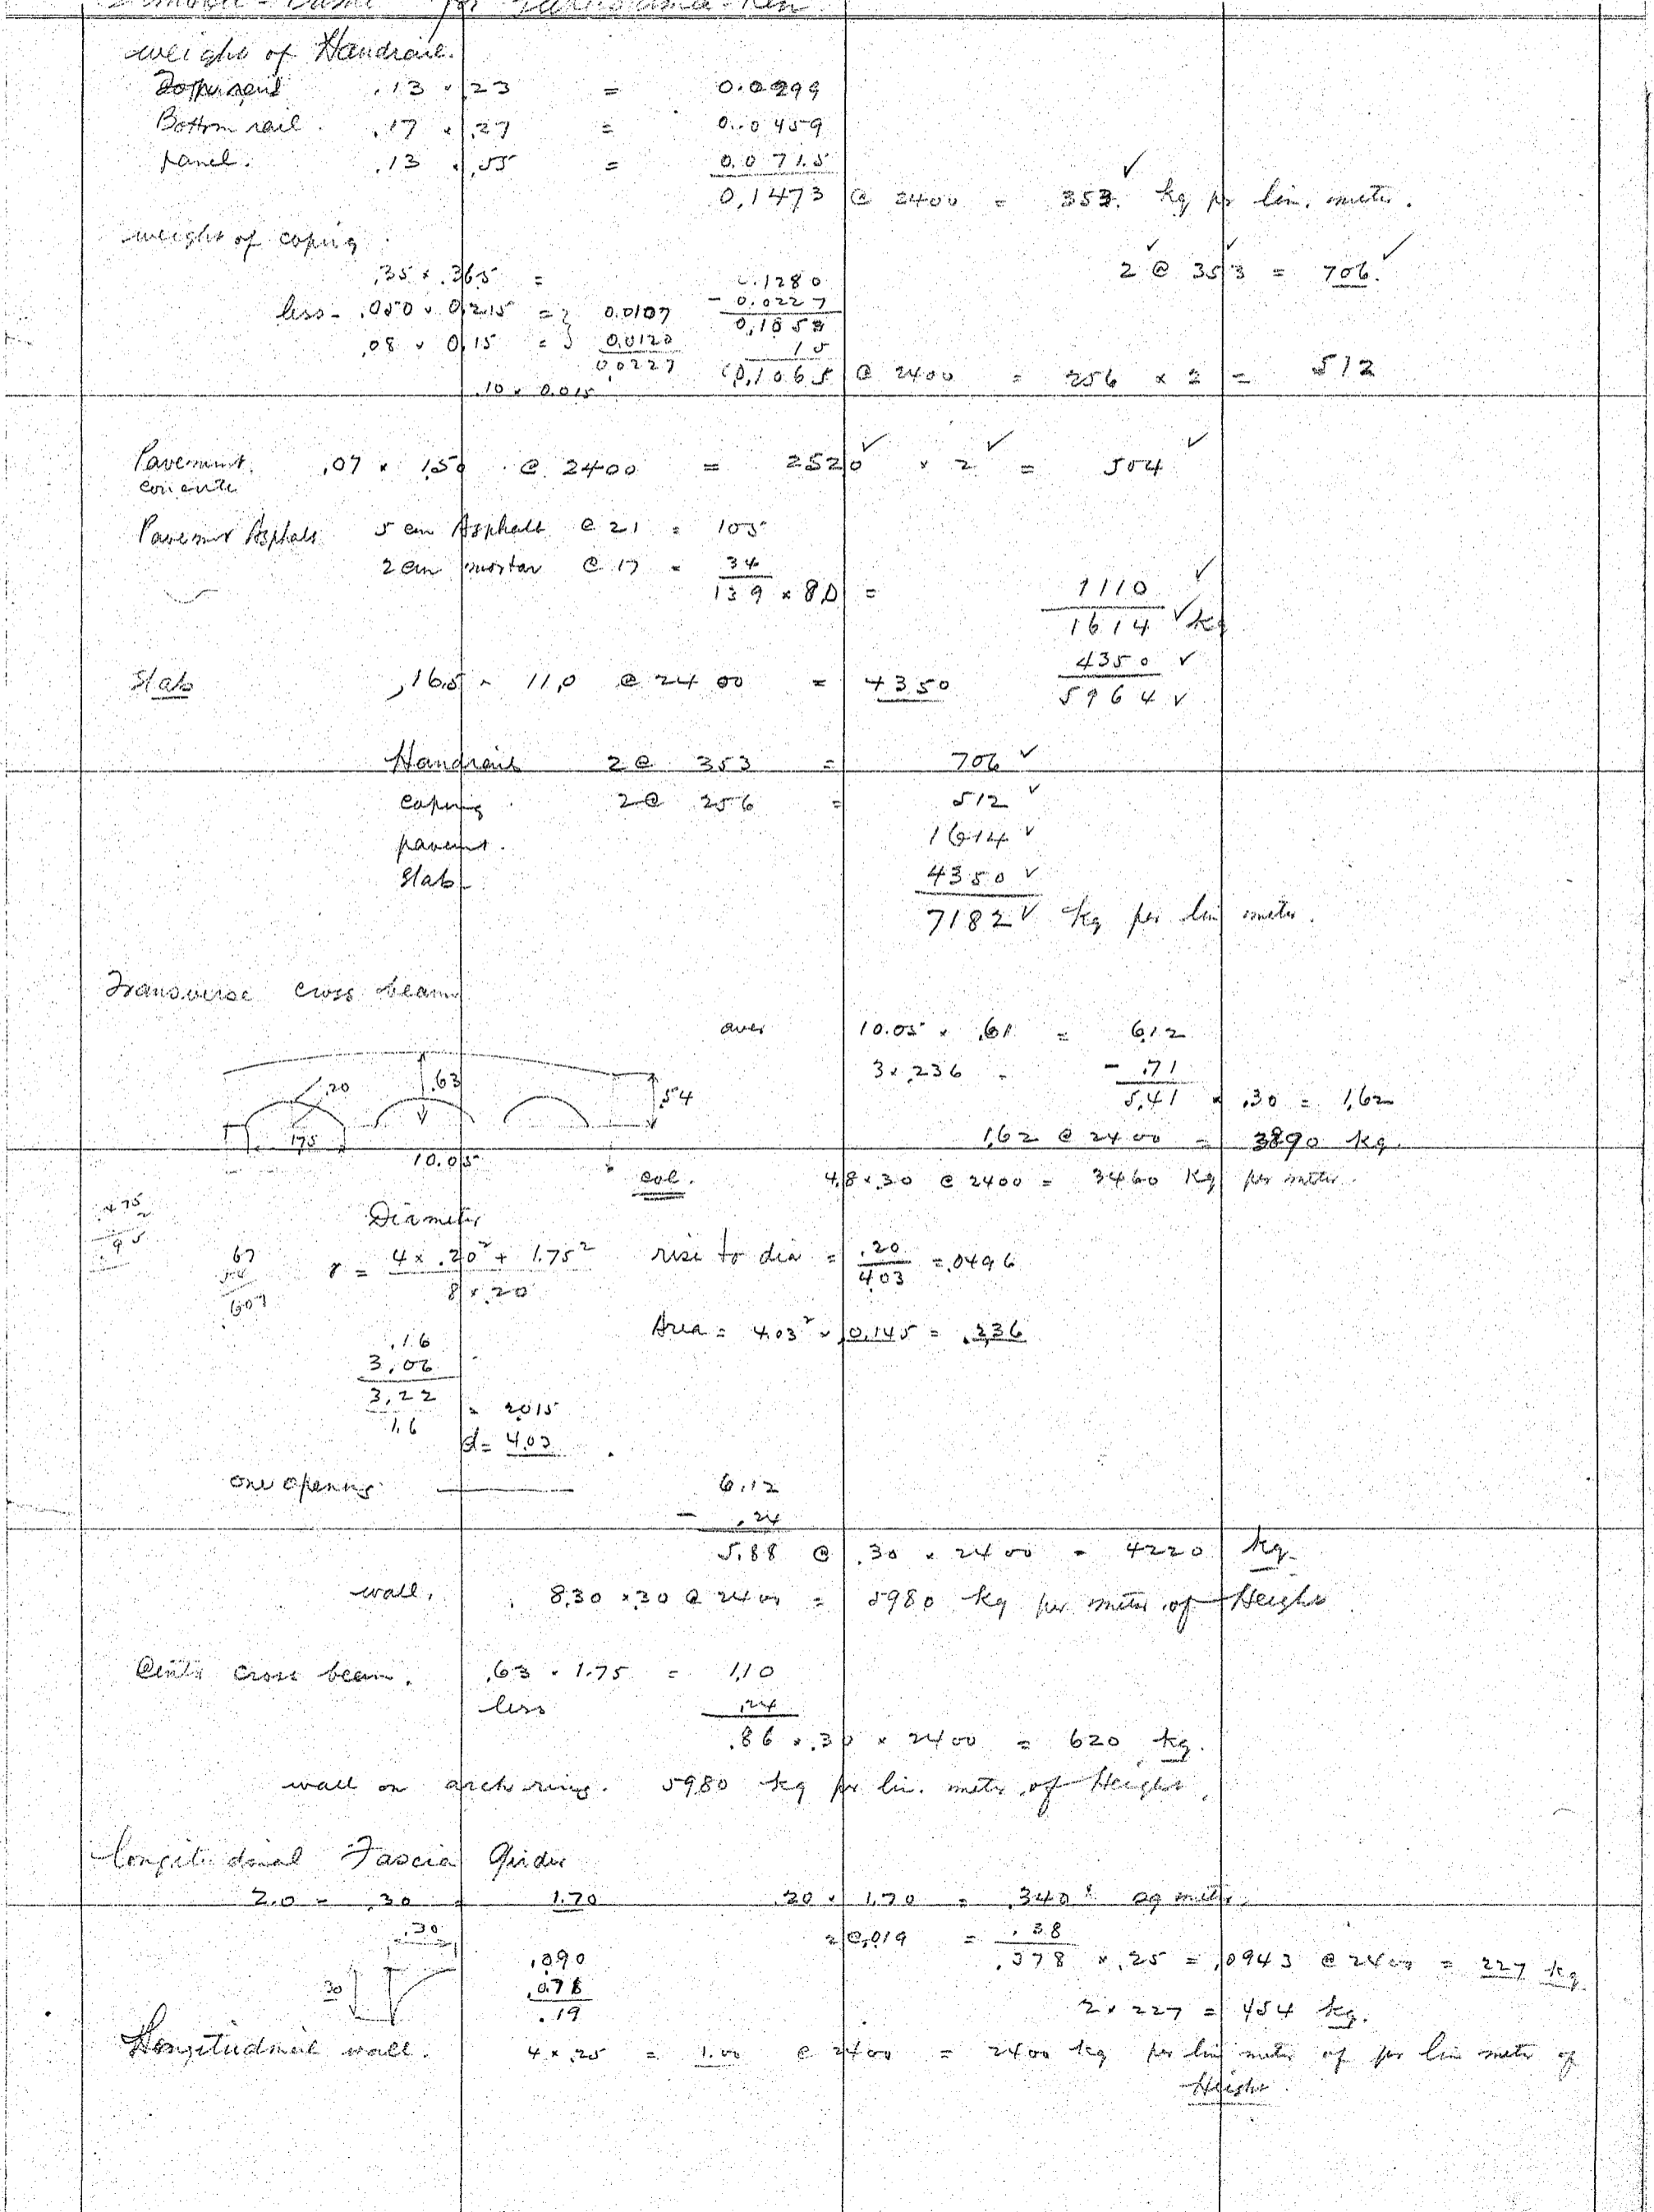 for Fukushima-Ken
weight of Handrail.
Top rail .13 × .23 = 0.0299
Bottom rail. .17 × .27 = 0.0459
panel. .13 × .55 = 0.0715
0.1473 @ 2400 = 353. ✓ kg pr lin. meter.
weight of coping
2 ✓ @ 353 ✓ = 706. ✓
.35 × .365 = 0.1280
less - .050 × 0.215 = } 0.0107 - 0.0227
.08 × 0.15 = } 0.0120 0.1053
0.0227 15
.10 × 0.015 0.1065 @ 2400 = 256 × 2 = 512
Pavement .07 × 1.50 @ 2400 = 252.0 ✓ × 2 ✓ = 504 ✓
concrete
Pavemnt Asphalt 5 cm Asphalt @ 21 = 105
2 cm mortar @ 17 = 34
139 × 8.0 = 1110 ✓
1614 ✓ kg
4350 ✓
Slab .165 × 11.0 @ 2400 = 4350
5964 ✓
Handrail 2 @ 353 = 706 ✓
coping 2 @ 256 = 512 ✓
pavemt. 1614 ✓
Slab 4350 ✓
7182 ✓ kg per lin meter.
Transverse cross beam
aver 10.05 × .61 = 6.12
3 × .236 - - .71
5.41 × .30 = 1.62
.20 .63 .54
1.75
1.62 @ 2400 = 3890 kg.
10.05
col. 4.8 × .30 @ 2400 = 3460 kg per meter.
.475
2
.95
Diameter
67
54
607
r = 4 × .20² + 1.75² rise to dia = .20 = .0496
8 × .20 4.03
Area = 4.03² × 0.145 = .236
.16
3.06
3.22
1.6 = 2.015
d = 4.03
one opening 6.12
- .24
5.88 @ .30 × 2400 = 4220 kg.
wall. 8.30 × .30 @ 2400 = 5980 kg per meter of Height
Center cross beam. .63 × 1.75 = 1.10
less .24
.86 × .30 × 2400 = 620 kg.
wall on arch ring. 5980 kg pr lin. meter of Height.
Longitudinal Fascia Girder
2.0 - .30 = 1.70 .20 × 1.70 = .340 sq meter.
.30 2 @ .019 = .38
.378 × .25 = .0943 @ 2400 = 227 kg
30 .090
.078
.19
2 × 227 = 454 kg.
Longitudinal wall. 4 × .25 = 1.00 @ 2400 = 2400 kg per lin meter of per lin meter of
Height.